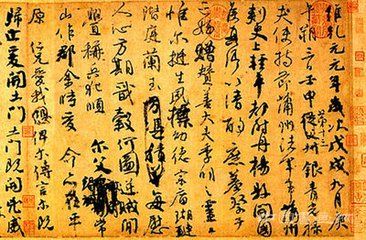 維乾元元年歲次戊戌九月庚
午朔三日壬申第十三叔銀青光祿
夫使持節蒲州諸軍事蒲州
刺史上輕車都尉丹楊縣開國
侯真卿以清酌庶羞祭于
亡姪贈贊善大夫季明之靈曰
惟爾挺生夙標幼德宗廟瑚璉
階庭蘭玉每慰
人心方期戩穀何圖逆賊閒
釁稱兵犯順爾父竭誠常
山作郡余時受命亦在平
原仁兄愛我俾爾傳言爾既
歸止爰開土門土門既開凶威